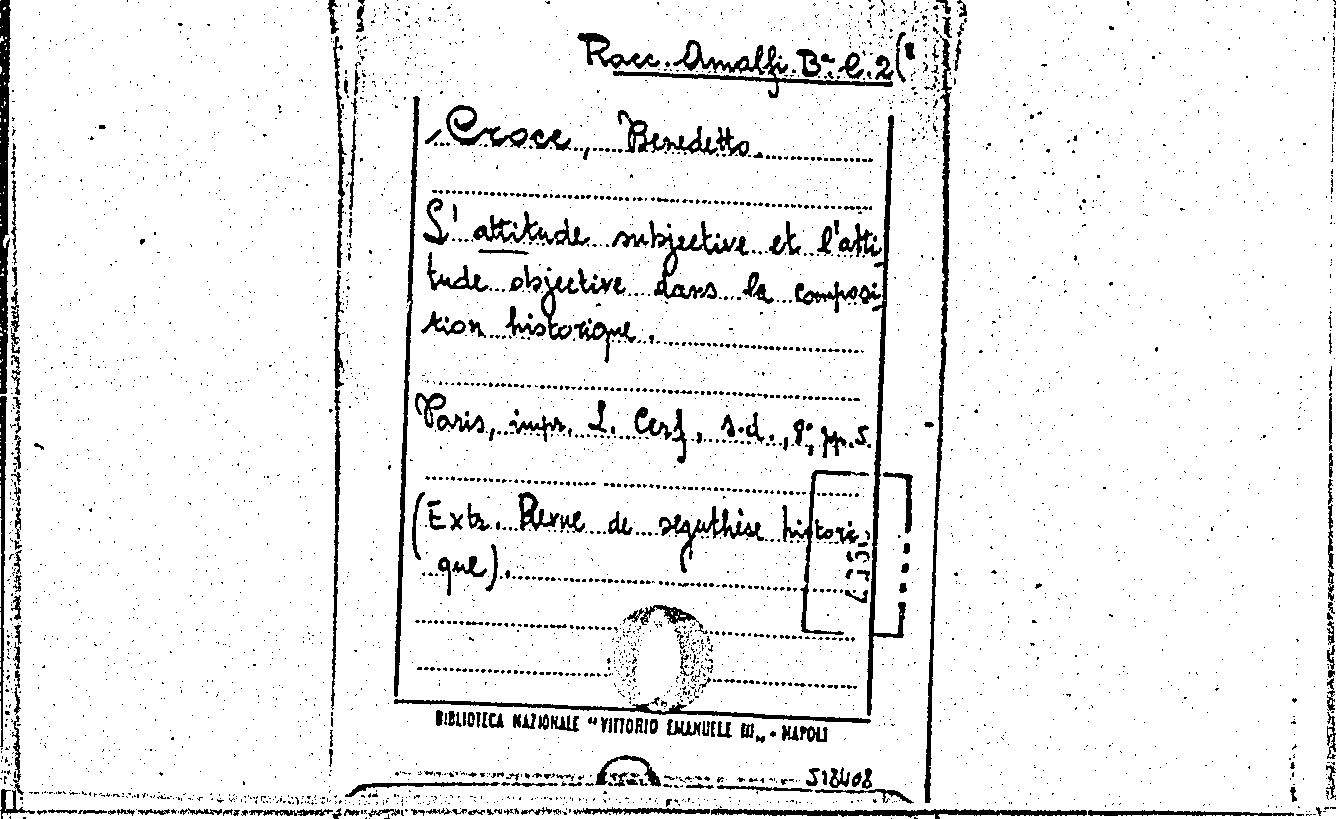 Racc. Amalfi. Bª C. 2(8
Croce, Benedetto.
L'attitude subjective et l'atti-
tude objective dans la composi-
tion historique.
Paris, impr. L. Cerf, s.d., 8°, pp. 5.
(Extr. Revue de séguthèse histori-
que).
BIBLIOTECA NAZIONALE "VITTORIO EMANUELE III„ - NAPOLI
518408